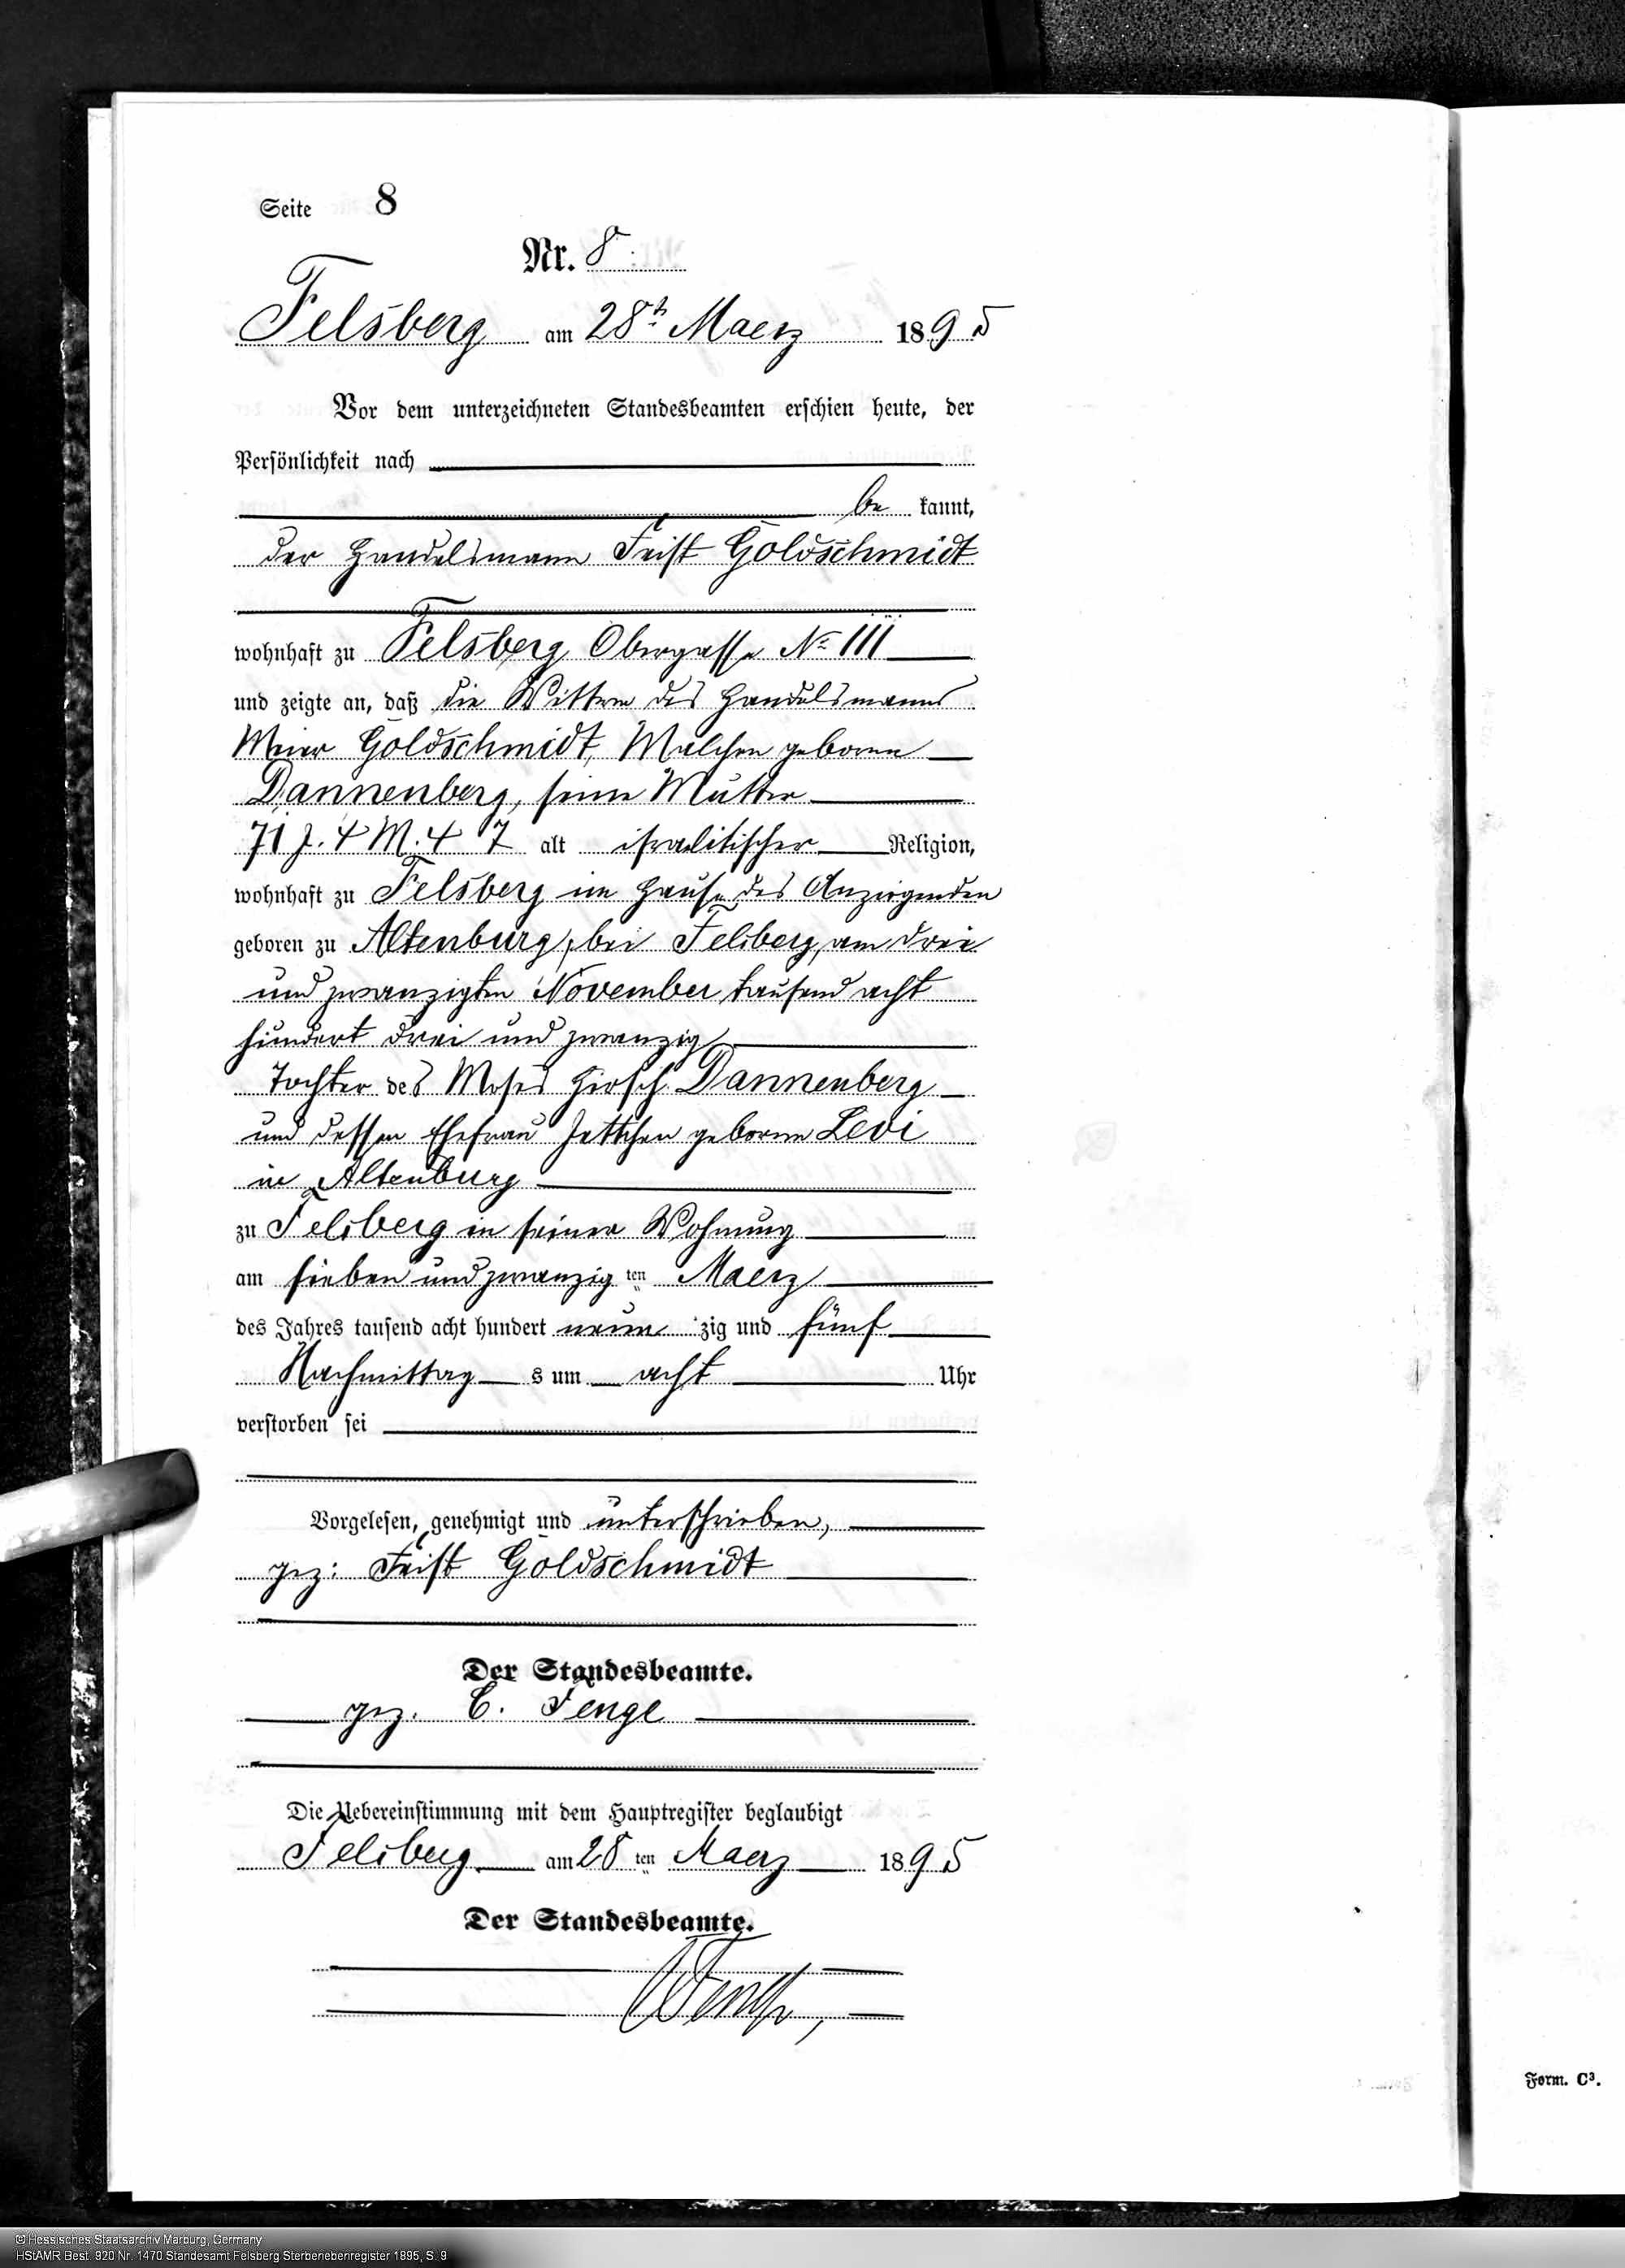 Seite 8
Nr. 8
Felsberg am 28t Maerz 1895
Vor dem unterzeichneten Standesbeamten erschien heute, der
Persönlichkeit nach
be kannt,
der Handelsmann Feist Goldschmidt
wohnhaft zu Felsberg Obergasse No 111
und zeigte an, daß die Wittwe des Handelsmanns
Meier Goldschmidt, Malchen geborene
Dannenberg, seine Mutter
71 J. 4 M. 4 T alt israelitischer Religion,
wohnhaft zu Felsberg im Hause des Anzeigenden
geboren zu Altenburg, bei Felsberg, am drei
und zwanzigten November tausend acht
hundert drei und zwanzig
Tochter des Moses Hirsch Dannenberg
und dessen Ehefrau Jettchen geborene Levi
in Altenburg
zu Felsberg in seiner Wohnung
am sieben und zwanzig ten Maerz
des Jahres tausend acht hundert neun zig und fünf
Nachmittag s um acht Uhr
verstorben sei
Vorgelesen, genehmigt und unterschrieben,
gez: Feist Goldschmidt
Der Standesbeamte.
gez. C. Fenge
Die Uebereinstimmung mit dem Hauptregister beglaubigt
Felsberg am 28 ten Maerz 1895
Der Standesbeamte.
Form. C3.
© Hessisches Staatsarchiv Marburg, Germany
HStAMR Best. 920 Nr. 1470 Standesamt Felsberg Sterbenebenregister 1895, S. 9